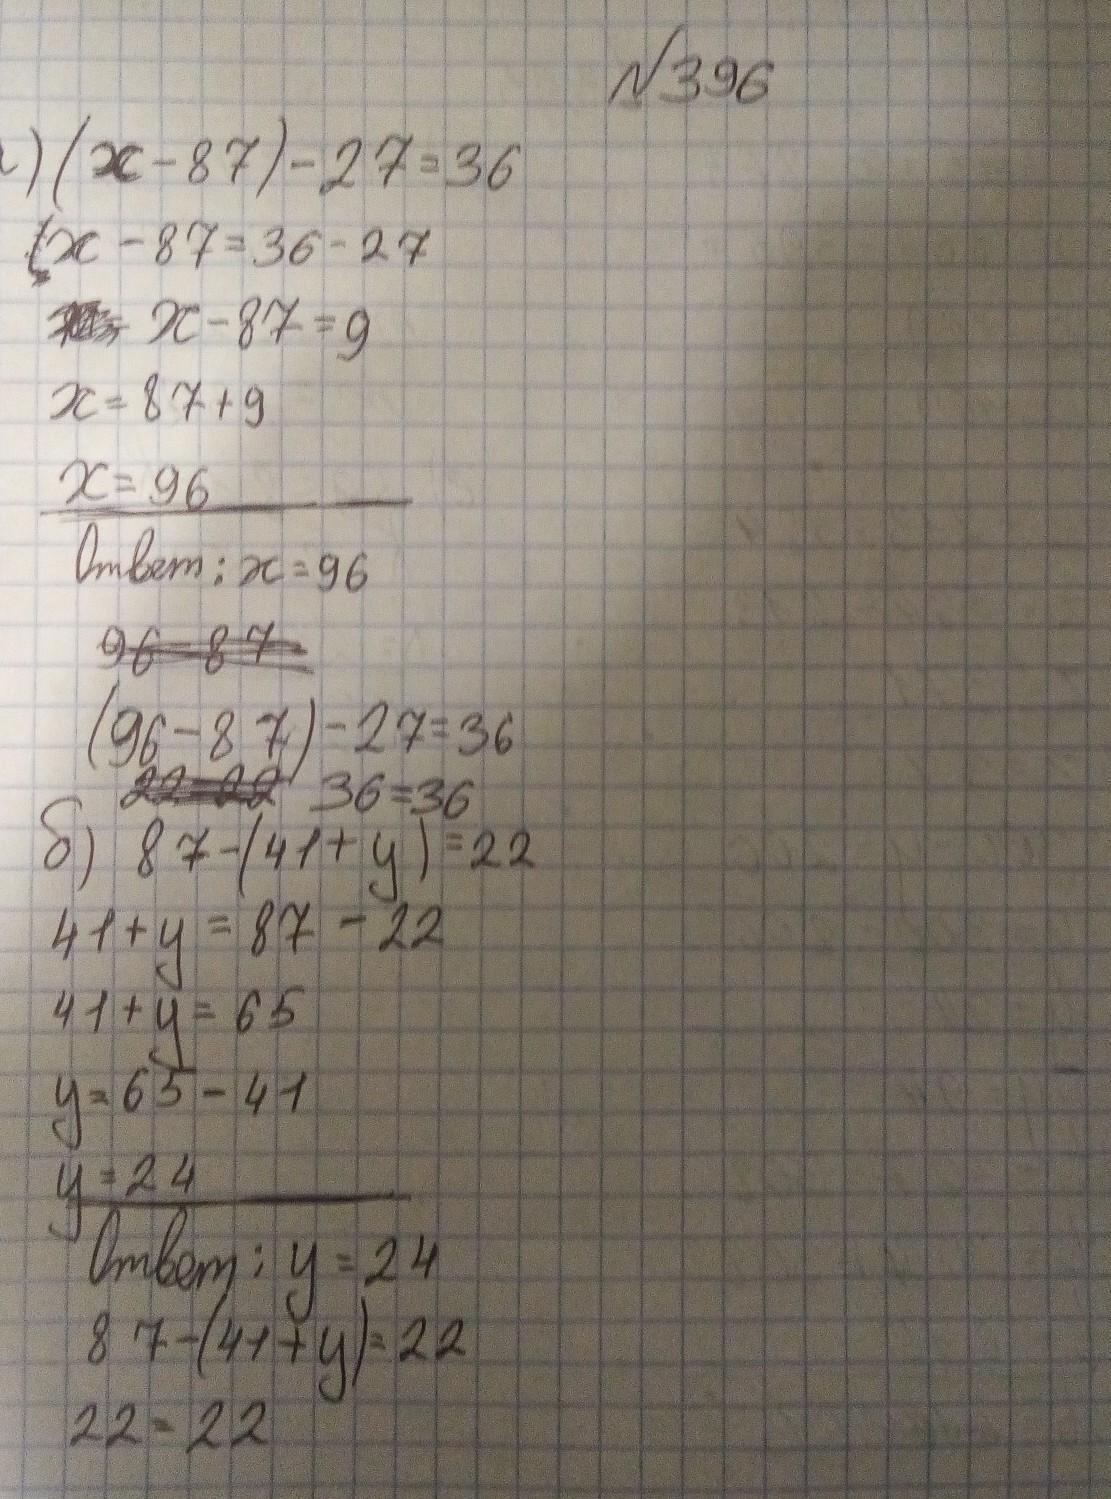 №396
а) (x-87)-27=36
(x-87=36-27
x-87=9
x=87+9
x=96
Ответ: x=96
96-87
(96-87)-27=36
22=22 36=36
б) 87-(41+y)=22
41+y=87-22
41+y=65
y=65-41
y=24
Ответ: y=24
87-(41+y)=22
22=22